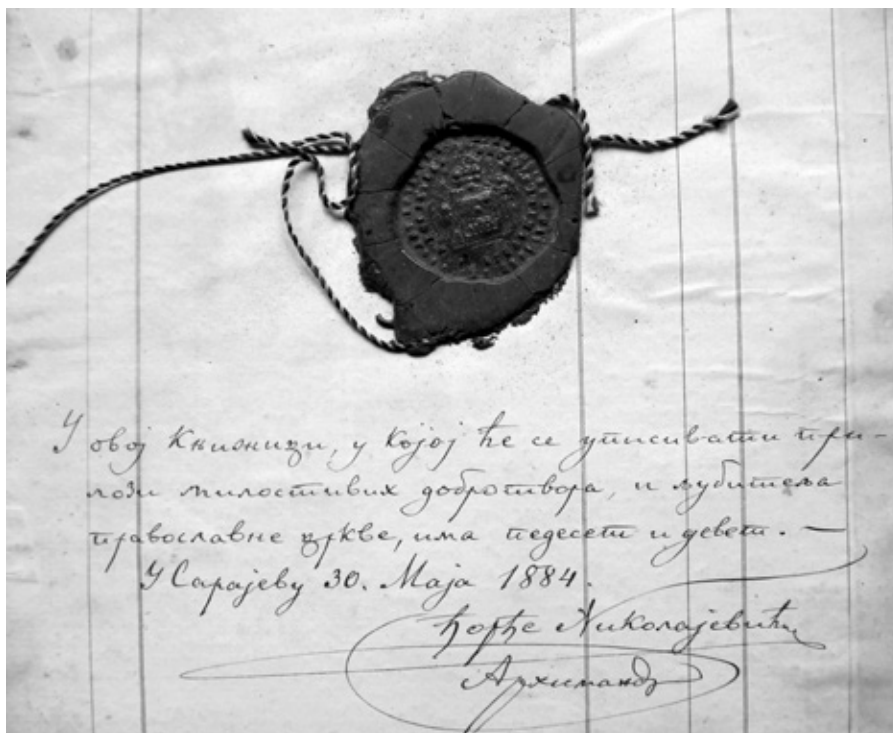 У овој Книжици, у којој ће се уписивати при-
лози милостивих добротвора, и љубитеља
православне цркве, има педесет и девет. —
У Сарајеву 30. Маја 1884.
Ђорђе Николајевић
Архиманд